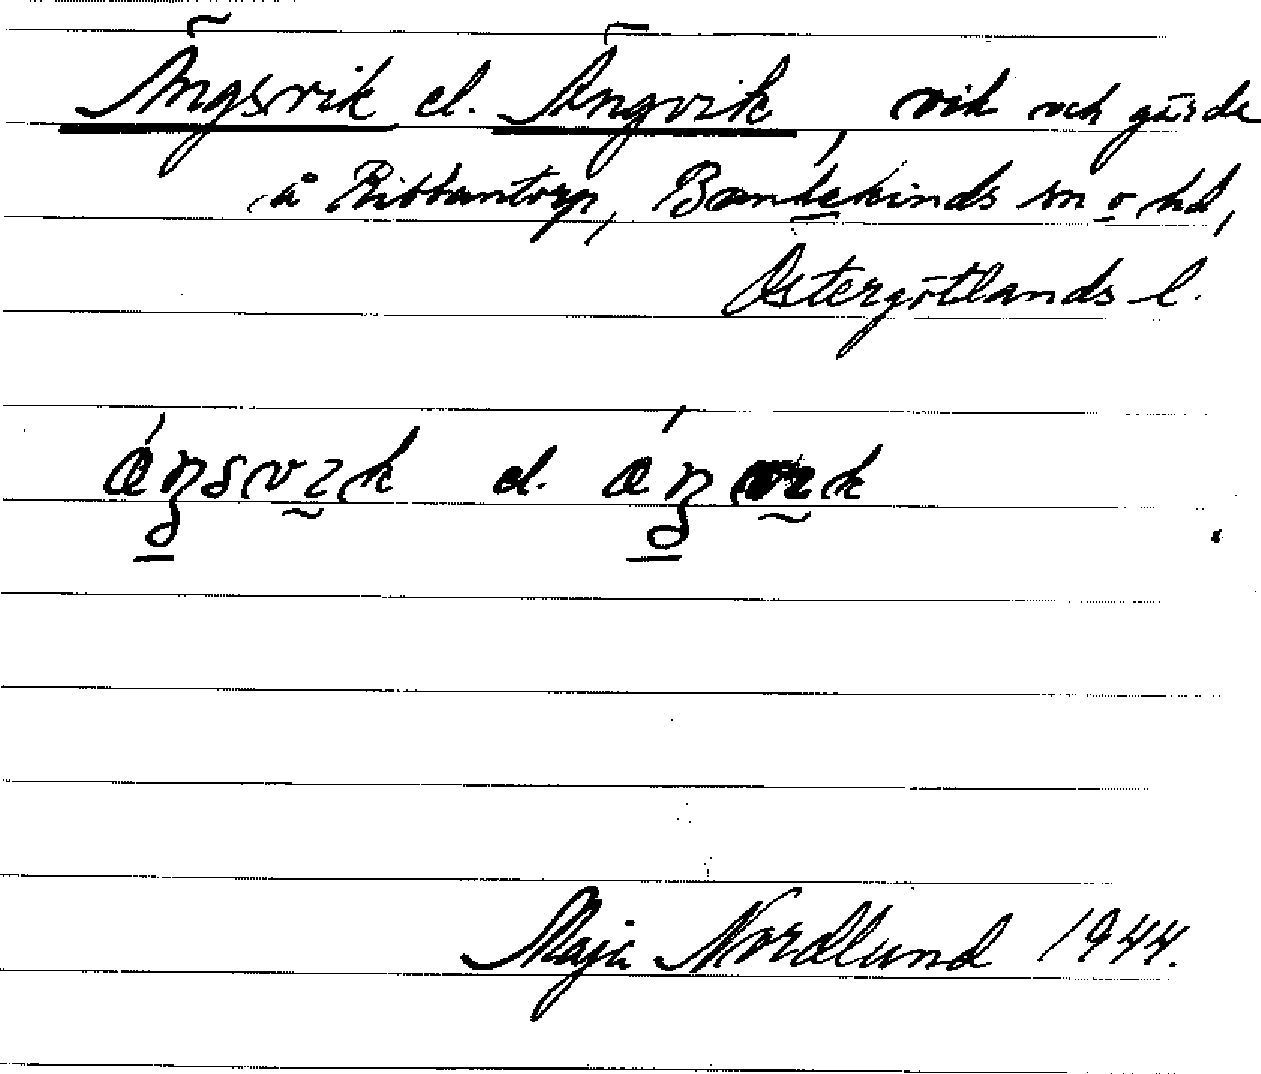 Ängsvik el. Ängvik, vik och gärde
å Ribbantorp, Bankekinds sn o hd,
Östergötlands l.
el.
Maja Nordlund 1944.